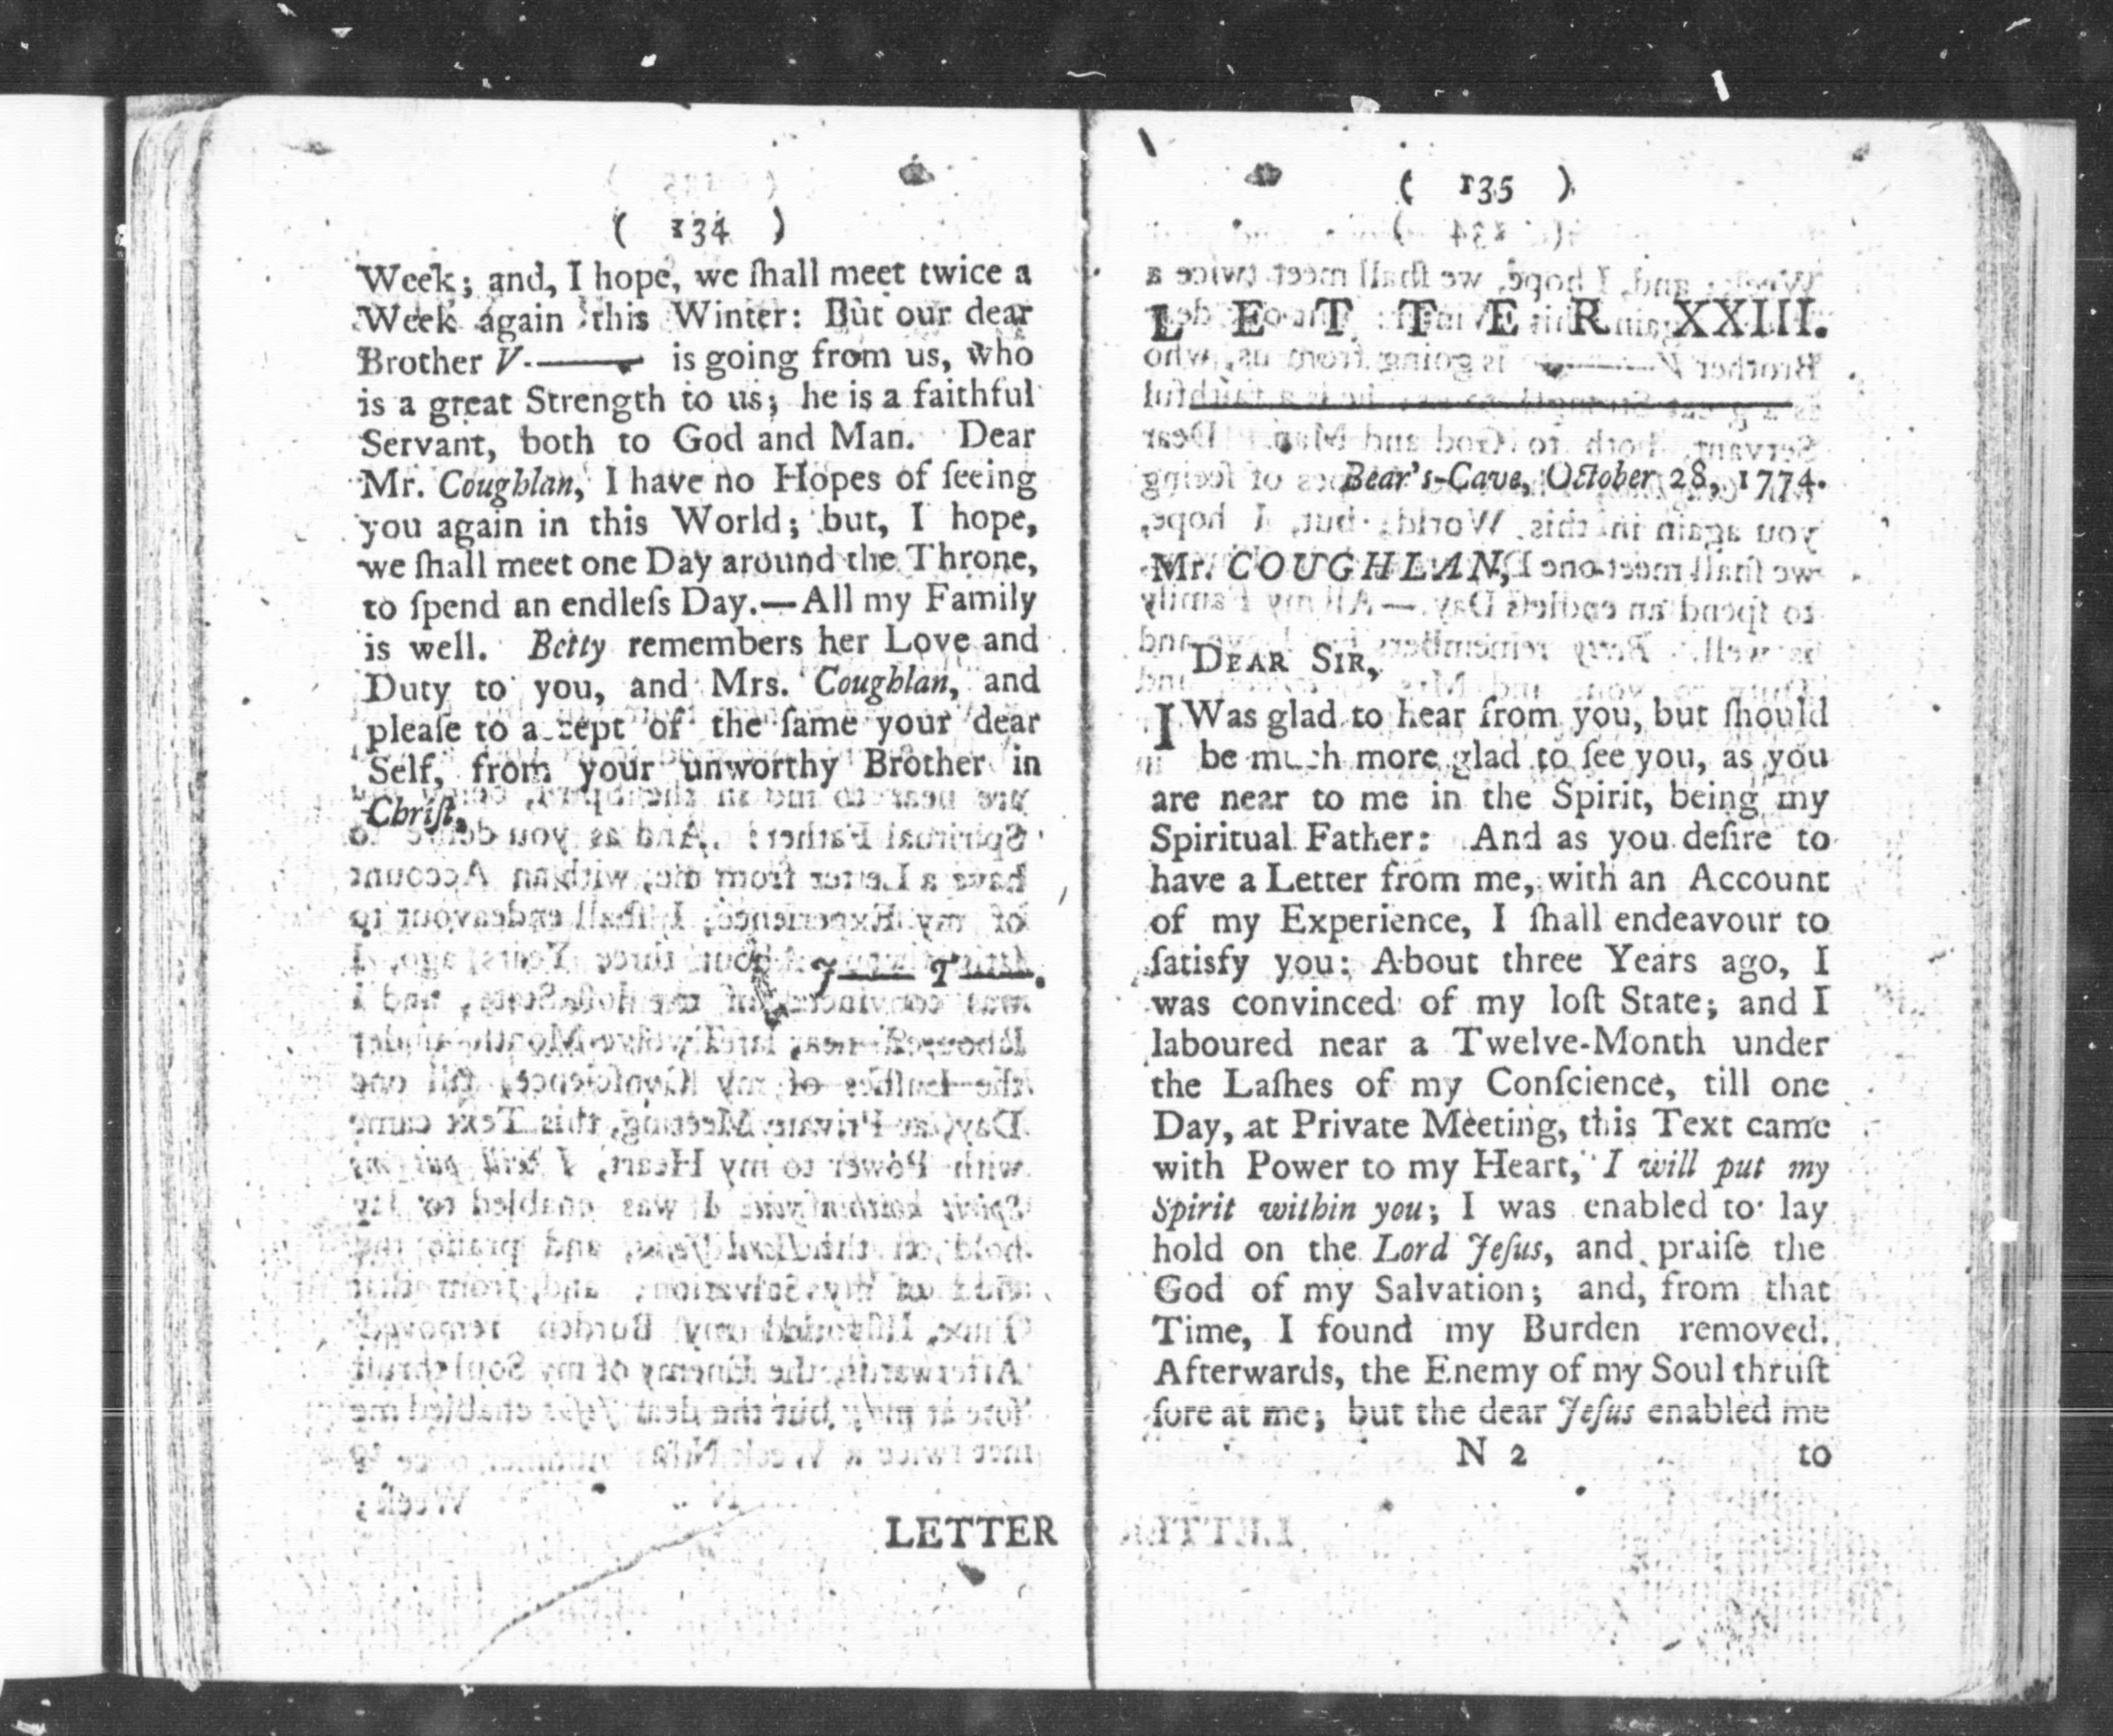 ( 134 )
Week; and, I hope, we ſhall meet twice a
Week again this Winter: But our dear
Brother V.——— is going from us, who
is a great Strength to us; he is a faithful
Servant, both to God and Man. Dear
Mr. Coughlan, I have no Hopes of ſeeing
you again in this World; but, I hope,
we ſhall meet one Day around the Throne,
to ſpend an endleſs Day.—All my Family
is well. Betty remembers her Love and
Duty to you, and Mrs. Coughlan, and
pleaſe to accept of the ſame your dear
Self, from your unworthy Brother in
Chriſt,
J—— T——.
LETTER
( 135 )
LETTER XXIII.
Bear's-Cave, October 28, 1774.
Mr. COUGHLAN,
DEAR SIR,
I Was glad to hear from you, but ſhould
be much more glad to ſee you, as you
are near to me in the Spirit, being my
Spiritual Father: And as you deſire to
have a Letter from me, with an Account
of my Experience, I ſhall endeavour to
ſatisfy you: About three Years ago, I
was convinced of my loſt State; and I
laboured near a Twelve-Month under
the Laſhes of my Conſcience, till one
Day, at Private Meeting, this Text came
with Power to my Heart, I will put my
Spirit within you; I was enabled to lay
hold on the Lord Jeſus, and praiſe the
God of my Salvation; and, from that
Time, I found my Burden removed.
Afterwards, the Enemy of my Soul thruſt
ſore at me; but the dear Jeſus enabled me
N 2 to